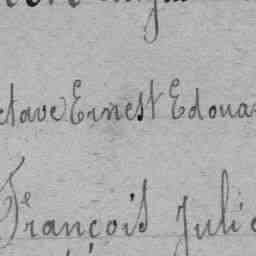 ctave Ernest Edoua
François Juli